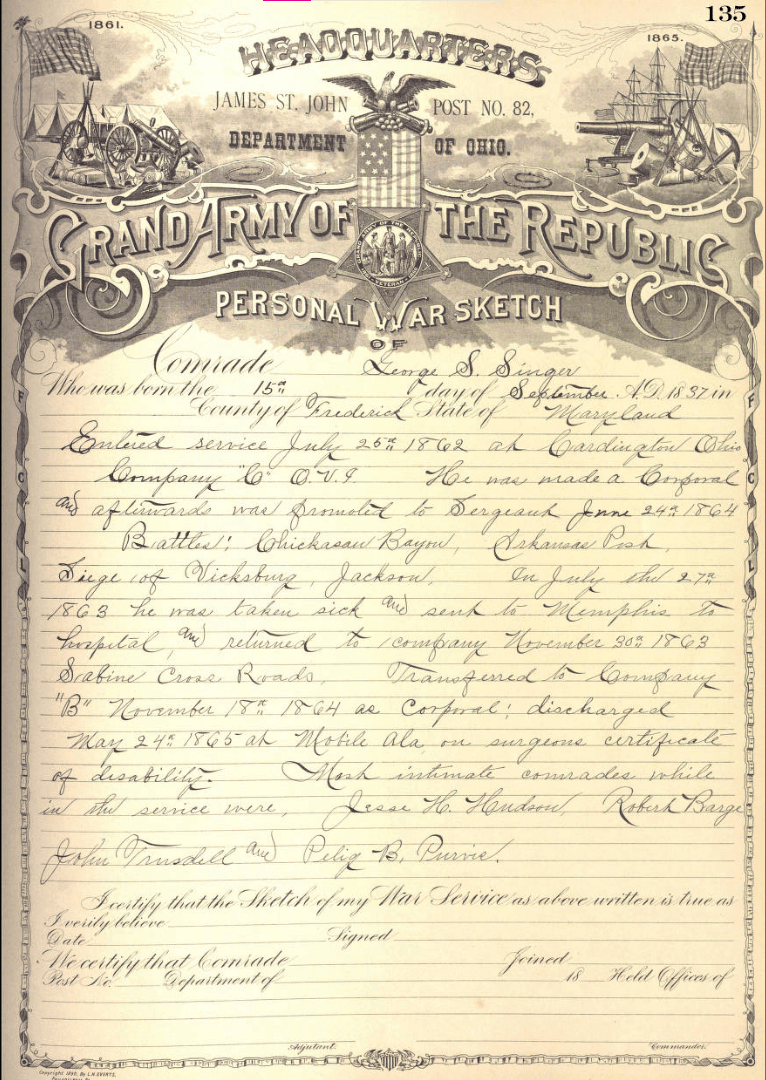 135
1861.
1865.
HEADQUARTERS
JAMES ST. JOHN POST NO. 82,
DEPARTMENT OF OHIO.
GRAND ARMY OF THE REPUBLIC
PERSONAL WAR SKETCH
OF
Comrade George S. Singer
Who was born the 15th day of September A.D. 1837 in
County of Frederick State of Maryland
Entered service July 25th 1862 at Cardington Ohio
Company "C" O.V.I. He was made a Corporal
and afterwards was promoted to Sergeant June 24th 1864
Battles: Chickasaw Bayou, Arkansas Post,
Siege of Vicksburg, Jackson, In July the 27th
1863 he was taken sick and sent to Memphis to
hospital, and returned to company November 30th 1863
Sabine Cross Roads, Transferred to Company
"B" November 18th 1864 as Corporal; discharged
May 24th 1865 at Mobile Ala, on surgeons certificate
of disability. Most intimate comrades while
in the service were, Jesse H. Hudson, Robert Barge
John Trusdell and Pelig B. Purvis.
I certify that the Sketch of my War Service as above written is true as
I verily believe
Date Signed
We certify that Comrade Joined
Post No. Department of 18 Held Offices of
Adjutant. Commander.
Copyright 1890, By L.H. EVERTS,
F C L
F C L